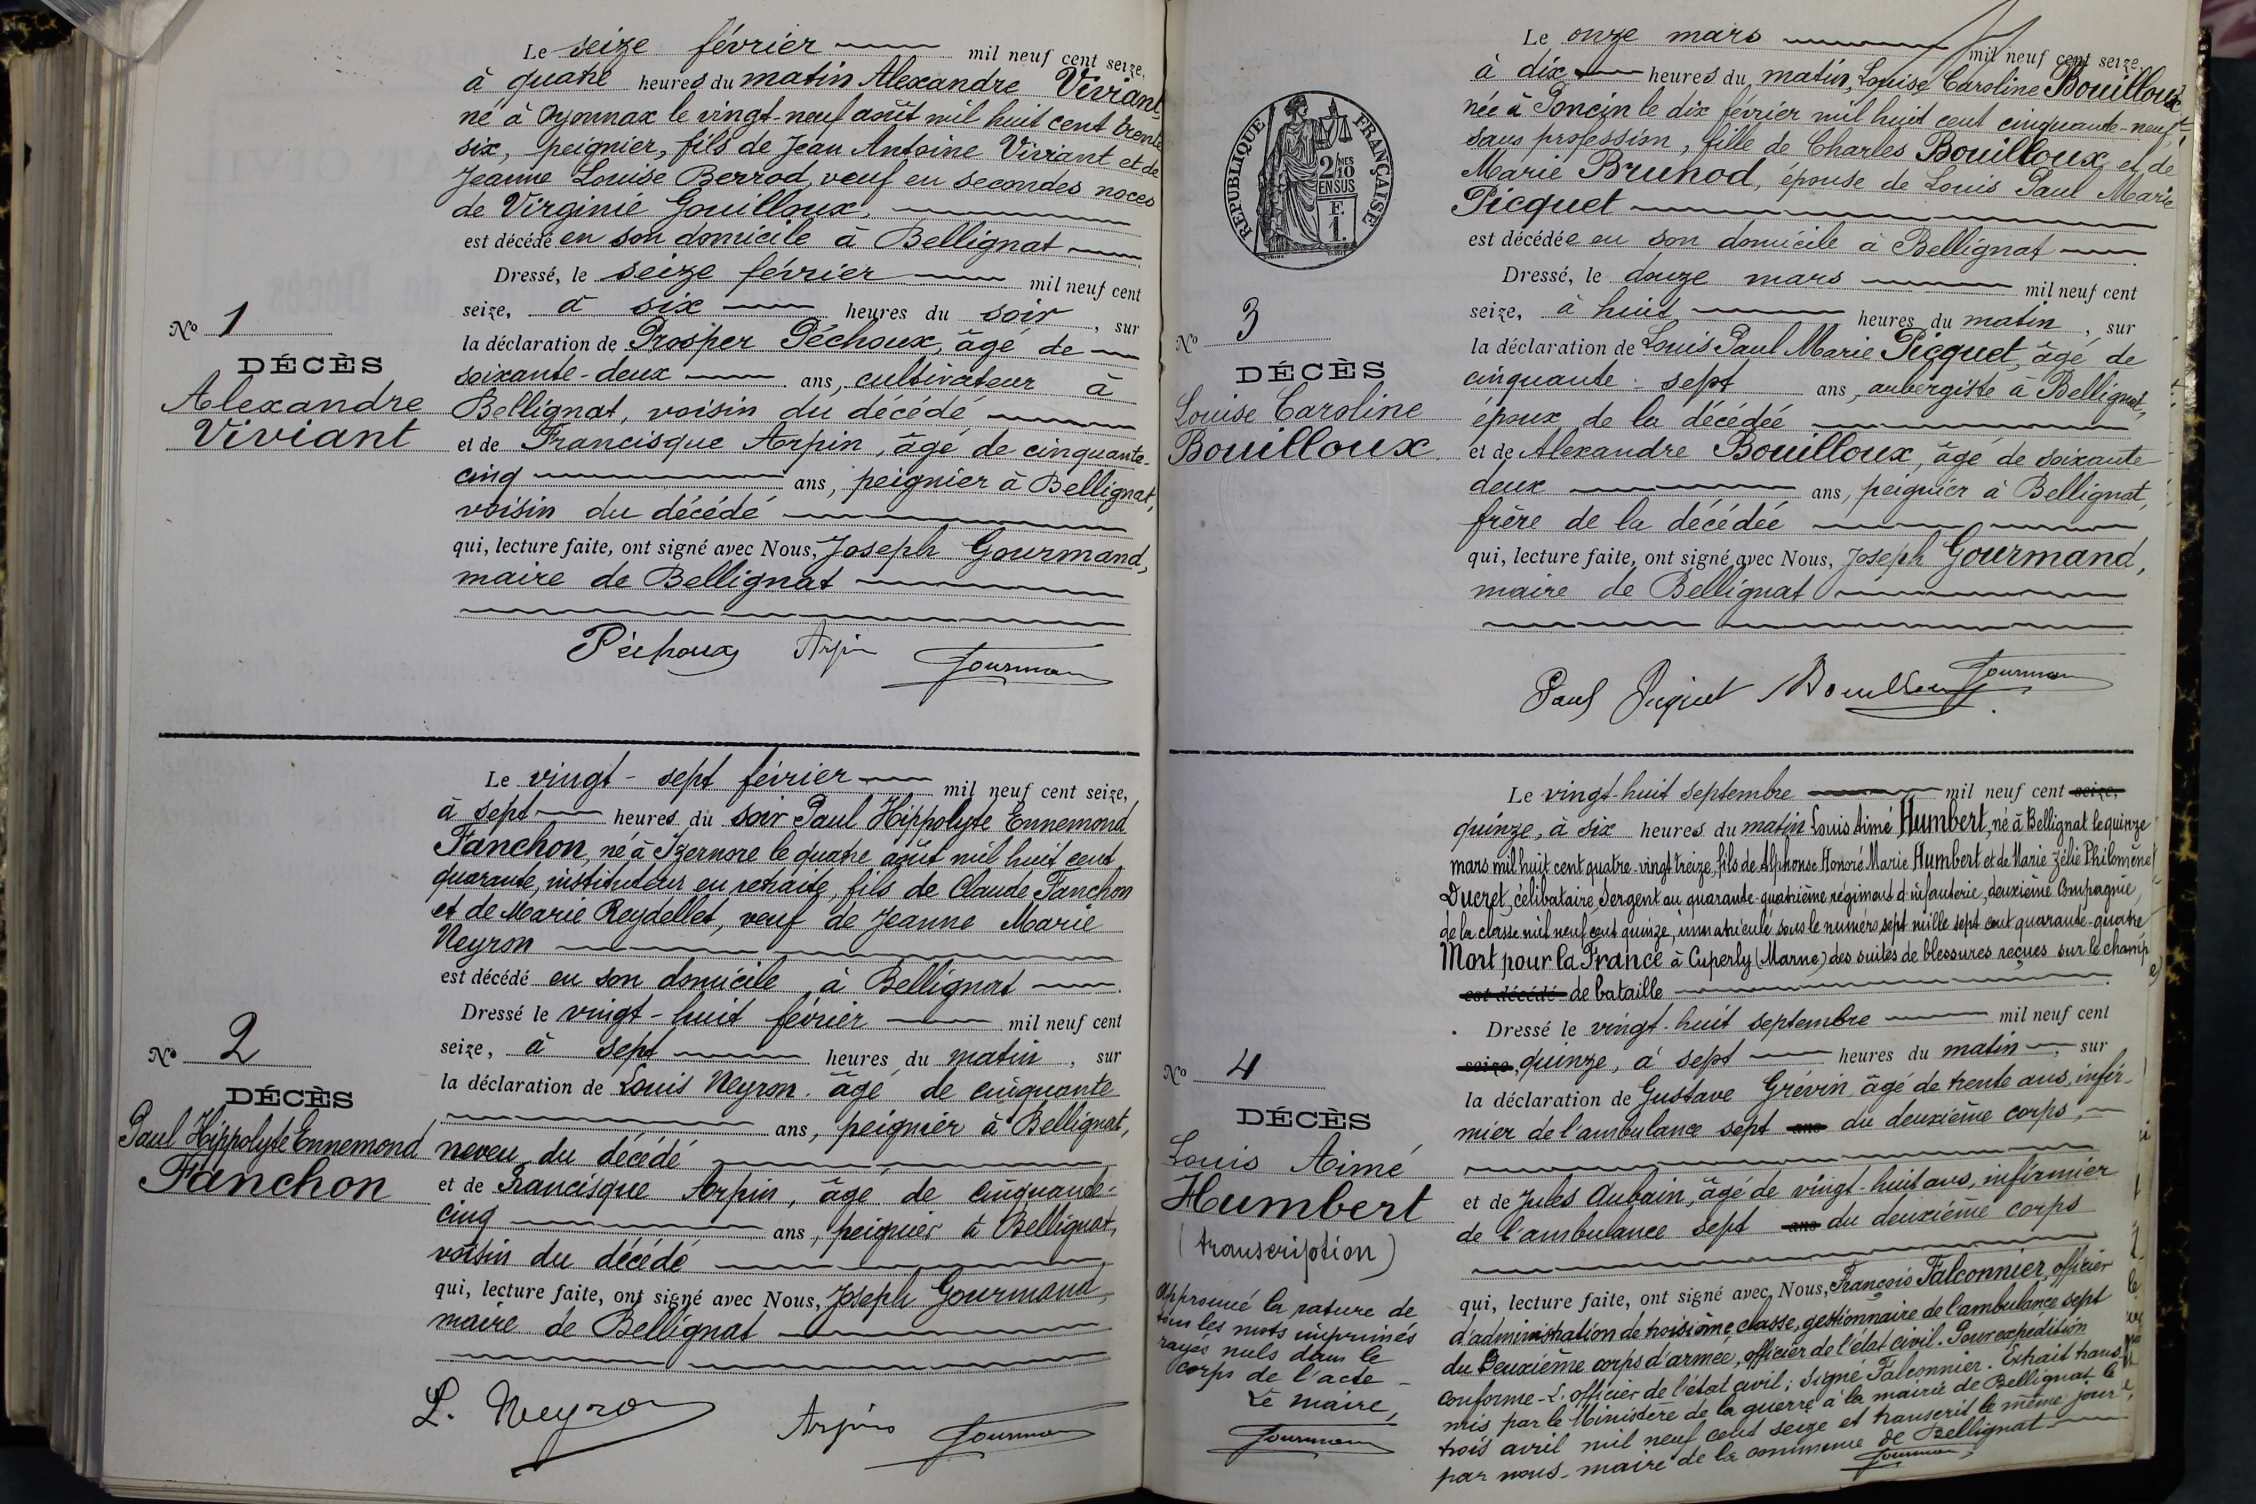 Le seize février mil neuf cent seize,
à quatre heures du matin Alexandre Viviant
né à Oyonnax le vingt-neuf août mil huit cent trente
six, peignier, fils de Jean Antoine Viviant et de
Jeanne Louise Berrod, veuf en secondes noces
de Virginie Gouilloux,
est décédé en son domicile à Bellignat
Dressé, le seize février mil neuf cent
seize, à six heures du soir, sur
la déclaration de Prosper Péchoux, âgé de
soixante-deux ans, cultivateur à
Bellignat, voisin du décédé
et de Francisque Arpin, âgé de cinquante-
cinq ans, peignier à Bellignat,
voisin du décédé
qui, lecture faite, ont signé avec Nous, Joseph Gourmand,
maire de Bellignat
Péchoux Arpin Gourman
No 1
DÉCÈS
Alexandre
Viviant
Le vingt-sept février mil neuf cent seize,
à sept heures du soir Paul Hippolyte Ennemond
Fanchon, né à Izernore le quatre août mil huit cent
quarante, instituteur en retraite, fils de Claude Fanchon
et de Marie Reydellet, veuf de Jeanne Marie
Neyron
est décédé en son domicile à Bellignat
Dressé le vingt-huit février mil neuf cent
seize, à sept heures du matin, sur
la déclaration de Louis Neyron. âgé de cinquante
ans, peignier à Bellignat,
neveu du décédé
et de Francisque Arpin, âgé de cinquante-
cinq ans, peignier à Bellignat,
voisin du décédé
qui, lecture faite, ont signé avec Nous, Joseph Gourmand,
maire de Bellignat
L. Neyron Arpin Gourman
No 2
DÉCÈS
Paul Hippolyte Ennemond
Fanchon
RÉPUBLIQUE FRANÇAISE
2/10 MES
EN SUS
F.
1.
Le onze mars mil neuf cent seize,
à dix heures du matin, Louise Caroline Bouilloux
née à Poncin le dix février mil huit cent cinquante-neuf,
sans profession, fille de Charles Bouilloux et de
Marie Brunod, épouse de Louis Paul Marie
Picquet
est décédée en son domicile à Bellignat
Dressé, le douze mars mil neuf cent
seize, à huit heures du matin, sur
la déclaration de Louis Paul Marie Picquet, âgé de
cinquante-sept ans, aubergiste à Bellignat,
époux de la décédée
et de Alexandre Bouilloux, âgé de soixante
deux ans, peignier à Bellignat,
frère de la décédée
qui, lecture faite, ont signé avec Nous, Joseph Gourmand,
maire de Bellignat
Paul Picquet Bouilloux Gourman
No 3
DÉCÈS
Louise Caroline
Bouilloux
Le vingt-huit septembre mil neuf cent seize,
quinze, à six heures du matin Louis Aimé Humbert, né à Bellignat le quinze
mars mil huit cent quatre-vingt treize, fils de Alphonse Honoré Marie Humbert et de Marie Zélie Philomène
Ducret, célibataire, Sergent au quarante-quatrième régiment d'infanterie, deuxième Compagnie,
de la classe mil neuf cent quinze, immatriculé sous le numéro sept mille sept cent quarante-quatre
Mort pour la France à Cuperly (Marne) des suites de blessures reçues sur le champ
est décédé de bataille
Dressé le vingt-huit septembre mil neuf cent
seize, quinze, à sept heures du matin, sur
la déclaration de Gustave Grévin âgé de trente ans, infir-
mier de l'ambulance sept ans du deuxième corps,
et de Jules Aubain, âgé de vingt-huit ans, infirmier
de l'ambulance sept ans du deuxième corps
qui, lecture faite, ont signé avec Nous, François Falconnier, officier
d'administration de troisième classe, gestionnaire de l'ambulance sept
du Deuxième corps d'armée, officier de l'état civil. Pour expédition
conforme - L'officier de l'état civil; Signé Falconnier. Extrait trans
mis par le Ministère de la guerre à la mairie de Bellignat le
trois avril mil neuf cent seize et transcrit le même jour
par nous-maire de la commune de Bellignat
Gourman
No 4
DÉCÈS
Louis Aimé
Humbert
(transcription)
Approuvé la rature de
tous les mots imprimés
rayés nuls dans le
corps de l'acte -
Le maire,
Gourman